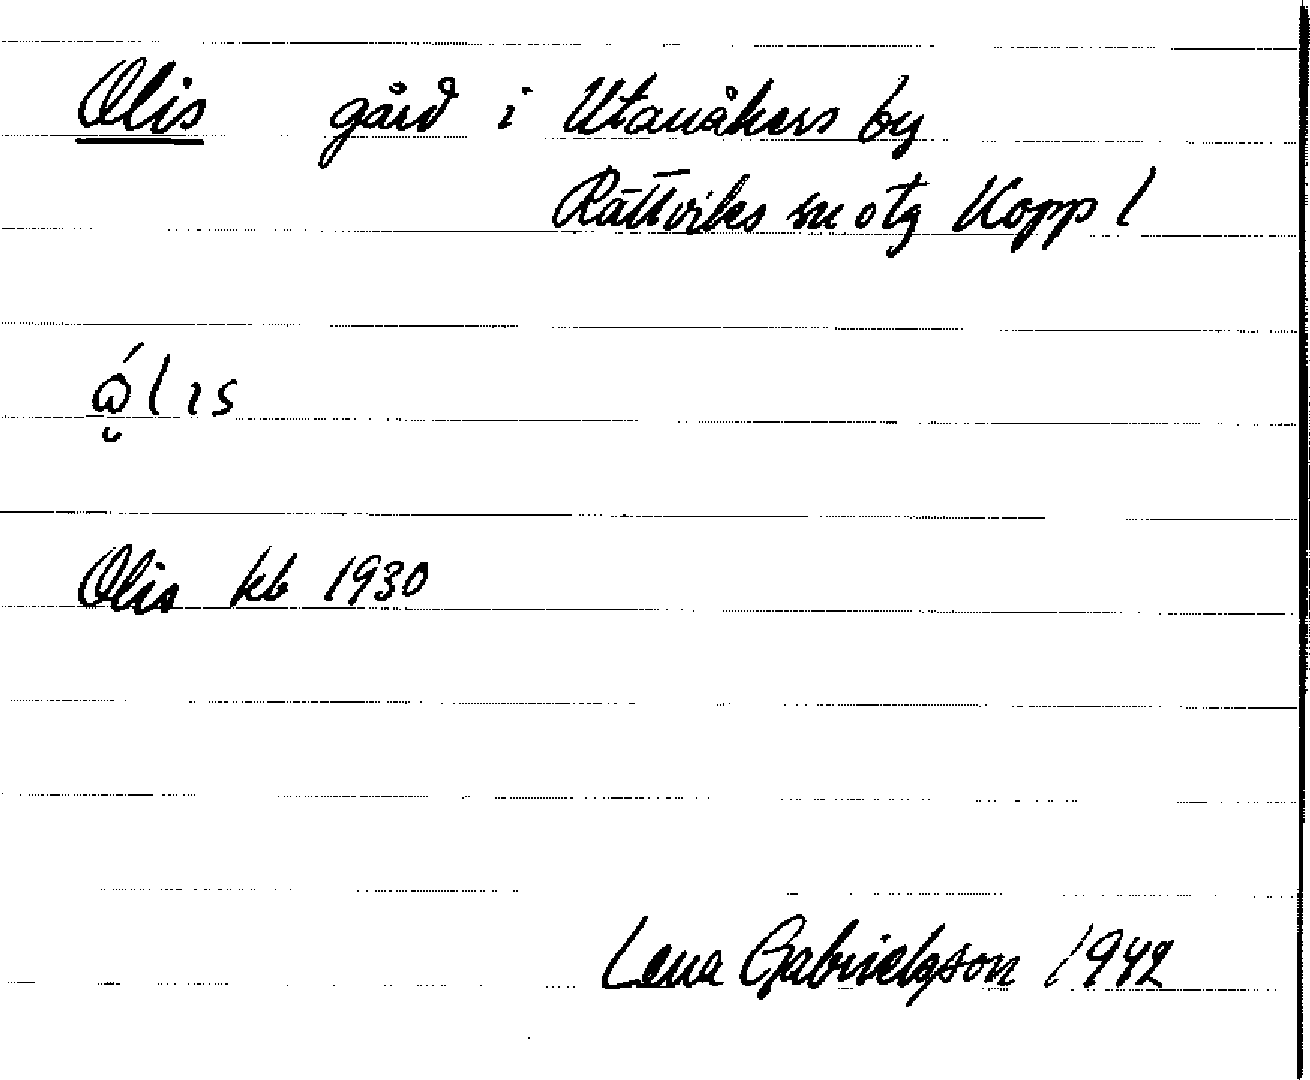 Olis gård i Utanåkers by
Rättviks sn o tg Kopp l
ώ̮lıs
Olis kb 1930
Lena Gabrielsson 1942